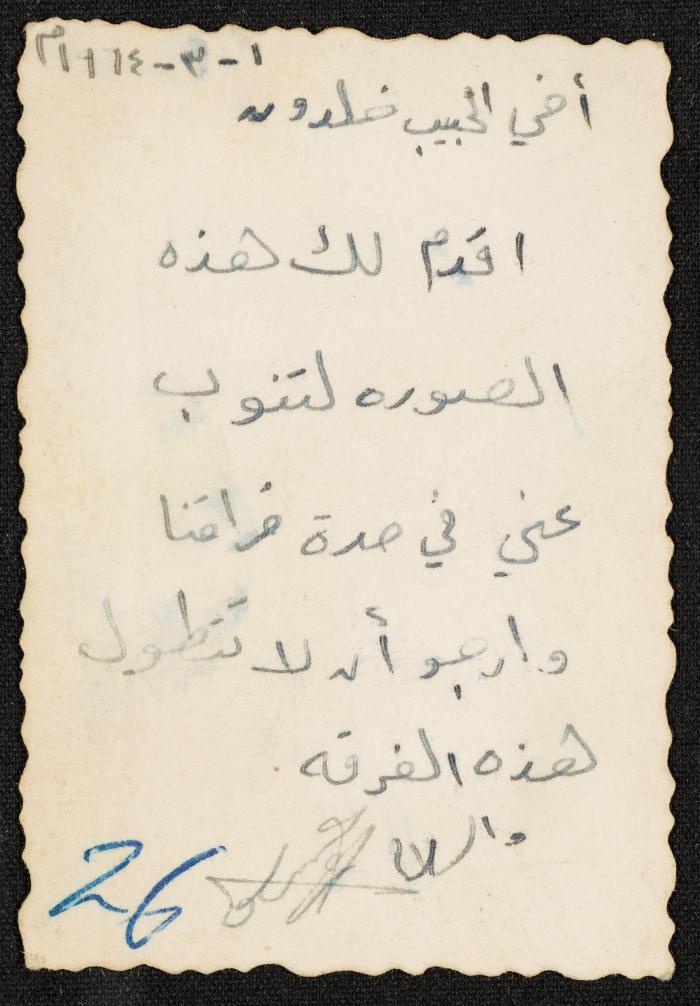 ١-٣-١٩٦٤م
أخي الحبيب خلدون
اقدم لك هذه
الصوره لتنوب
عني في مدة فراقنا
وارجو أن لا تتطول
هذه الفرقه
والسلام
26